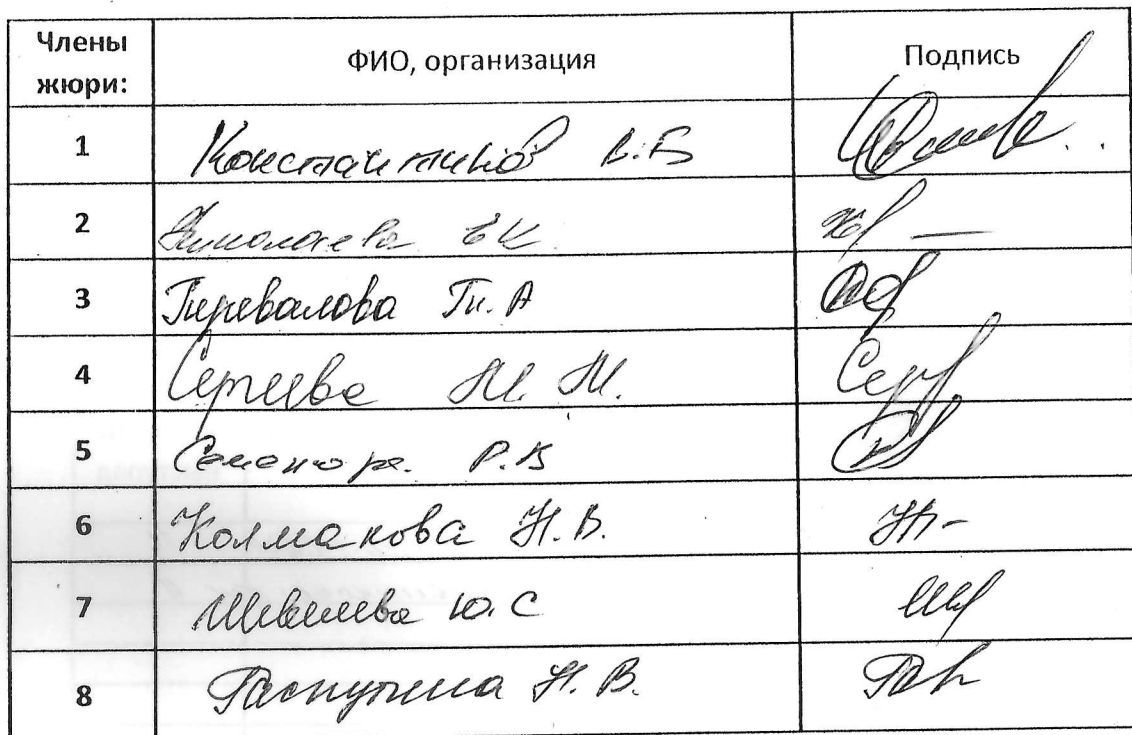 Члены жюри: ФИО, организация Подпись
1 Константинов В.Б
2 Николаева Е К
3 Перевалова Т. А
4 Сергеева
5 Р.В
6 Колмакова Н. В.
7 Шевелева Ю. С
8 Распутина Н. В.